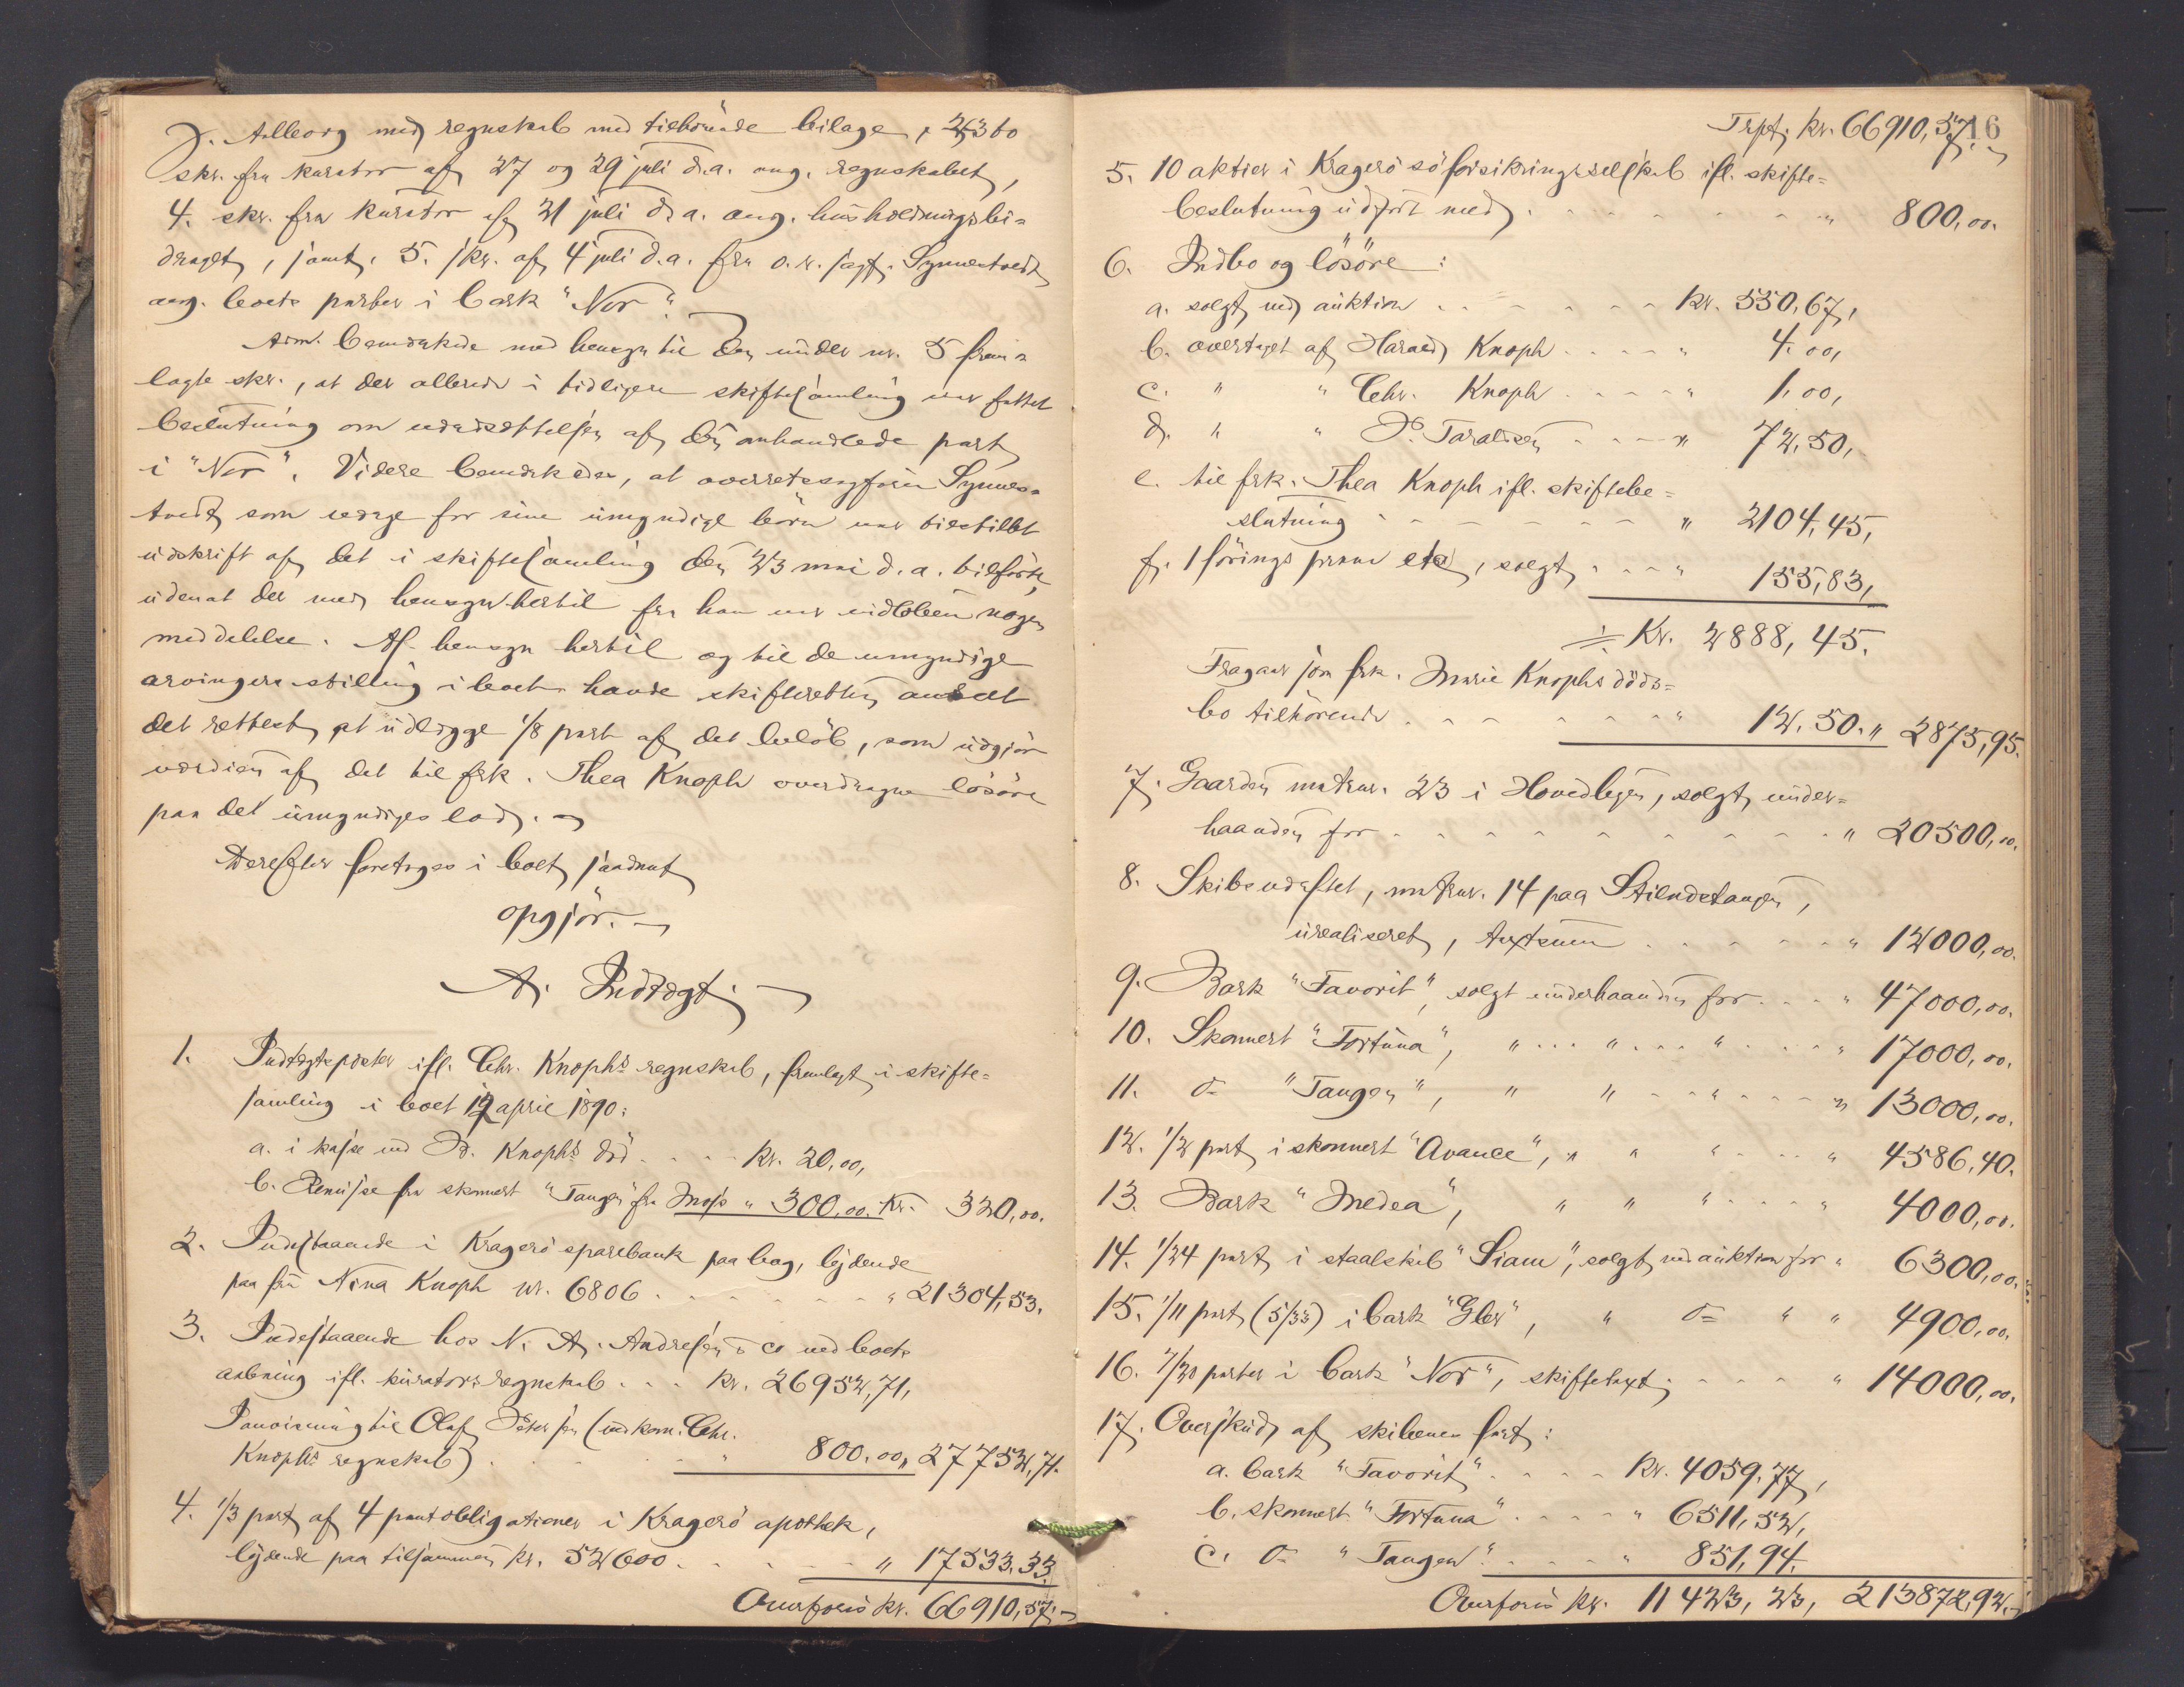 J. Aalborg med regnskab med tilhörende bilage, 2 & 3 to
skr. fra kurator af 27 og 29 juli d.a. ang. regnskabet,
4. skr. fra kurator af 31 juli d.a. ang. husholdningsbi-
draget, samt, 5. skr. af 4 juli d.a. fra o.r.sagf. Synnestvedt
ang. boets parter i bark "Nor".
Adm. bemærkede med hensyn til den under nr. 5 frem-
lagte skr., at der allerede i tidligere skiftesamling var fattet
beslutning om udsættelsen af den omhandlede part
i "Nor". Videre bemærkedes, at overretssagförer Synnes-
tvedt som værge for sine umyndige börn var tilstillet
udskrift af det i skiftesamling den 23 mai d.a. tilförte,
udenat der med hensyn hertil fra ham var indlöben nogen
meddelelse. Af hensyn hertil og til de umyndige
arvingers stilling i boet havde skifteretten anseet
det rettest at udlægge 1/8 part af det belöb, som udgjör
værdien af det til frk. Thea Knoph overdragne lösöre
paa det umyndiges lod.
Derefter foretoges i boet saadant
opgjör.
A. Indtægt.
1. Indtægtsposter ifl. Chr. Knophs regnskab, fremlagt i skifte-
samling i boet 19 april 1890:
a. i kasse ved D. Knophs död . . . . Kr. 20,00,
b. Remisse fra skonnert "Tangen" fra Moss " 300,00. Kr. 320,00.
2. Indestaaende i Kragerö sparebank paa bog, lydende
paa fru Nina Knoph nr. 6806 . . . . . . . " 21304,53.
3. Indestaaende hos N. A. Andresen & Co ved boets
aabning ifl. kurators regnskab . . . Kr. 26952,71,
Panvisning til Olaf Petersen (indkom. Chr.
Knophs regnskab) . . . . . " 800,00, 27752,71.
4. 1/3 part af 4 pantobligationer i Kragerö apothek,
lydende paa tilsammen Kr. 52600 . . . . . " 17533,33.
Overföres Kr. 66910,57.
16
Trpt. Kr. 66910,57.
5. 10 aktier i Kragerö söforsikringsselskab ifl. skifte-
beslutning udfört med . . . . . . . . " 800,00.
6. Indbo og lösöre:
a. solgt ved auktion . . . . . . Kr. 550,67,
b. overtaget af Harald Knoph . . . . " 4,00,
c. " " Chr. Knoph . . . . " 1,00,
d. " " D. Taraldsen . . . " 72,50,
e. til frk. Thea Knoph ifl. skiftebe-
slutning . . . . . . . " 2104,45,
f. 1 förings pram etc, solgt . . . " 155,83,
÷ Kr. 2888,45.
Fragaar som frk. Marie Knophs döds-
bo tilhörende . . . . . . . " 12,50. " 2875,95.
7. Gaarden matrnr. 23 i Hovedbyen, solgt under-
haanden for . . . . . . . . . . " 20500,00.
8. Skibsværftet, matrnr. 14 paa Stilnestangen,
urealiseret, taxtsum . . . . . . " 12000,00.
9. Bark "Favorit", solgt underhaanden for . . . " 47000,00.
10. Skonnert "Fortuna", " . . . " . . . " . . . . " 17000,00.
11. do "Tangen", " " . . " . . . . " 13000,00.
12. 1/2 part i skonnert "Avance", " " " . . . " 4586,40.
13. Bark "Medea", " " " . . . " 4000,00.
14. 1/24 part i staalskib "Siam", solgt ved auktion for " 6300,00.
15. 1/11 part (5/55) i bark "Gler", " do " " 4900,00.
16. 7/20 parter i bark "Nor", skiftetaxt . . . . . " 14000,00.
17. Overskud af skibenes fart:
a. bark "Favorit" . . . . . Kr. 4059,77,
b. skonnert "Fortuna" . . . . " 6511,52,
c. do "Tangen" . . . . " 851,94.
Overföres Kr. 11423,23, 213872,92.